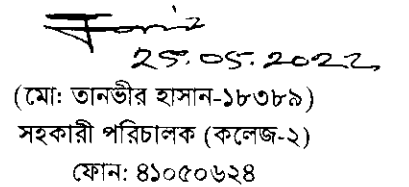 25.05.2022
(মো: তানভীর হাসান-১৮৩৮৯)
সহকারী পরিচালক (কলেজ-২)
ফোন: ৪১০৫০৬২৪